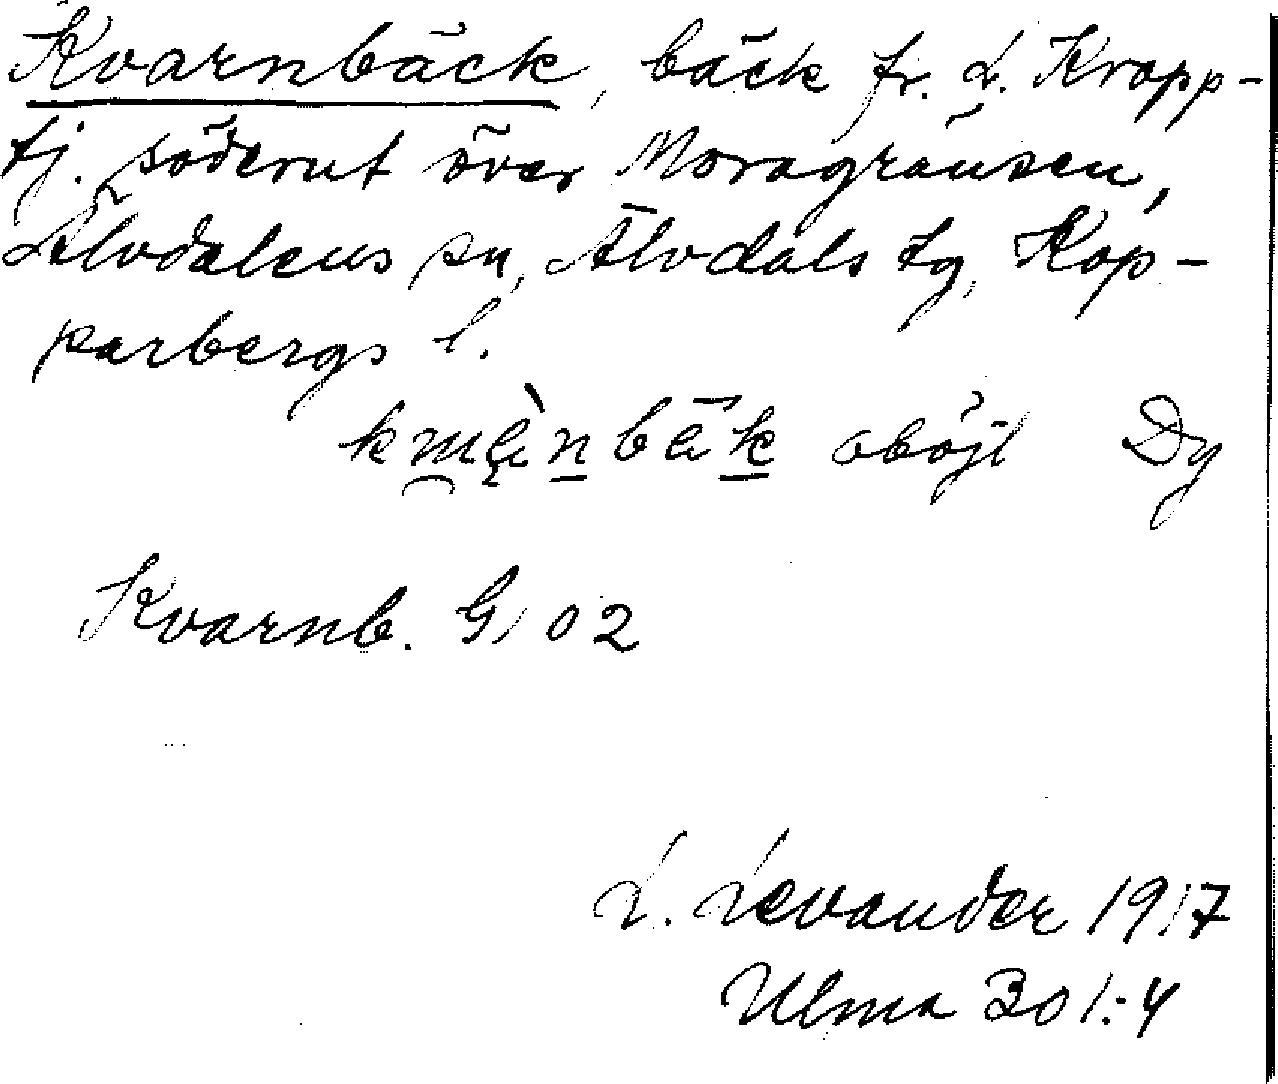 Kvarnbäck, bäck fr. L. Kropp-
tj. söderut över Moragränsen,
Älvdalens sn, Älvdals tg, Kop-
parbergs l.
oböjl Dy
Kvarnb. G, 02
L. Levander 1917
Ulma 301:4